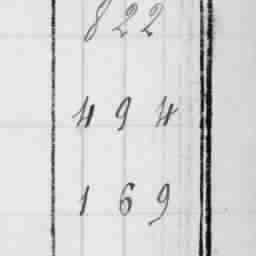 822
494
169